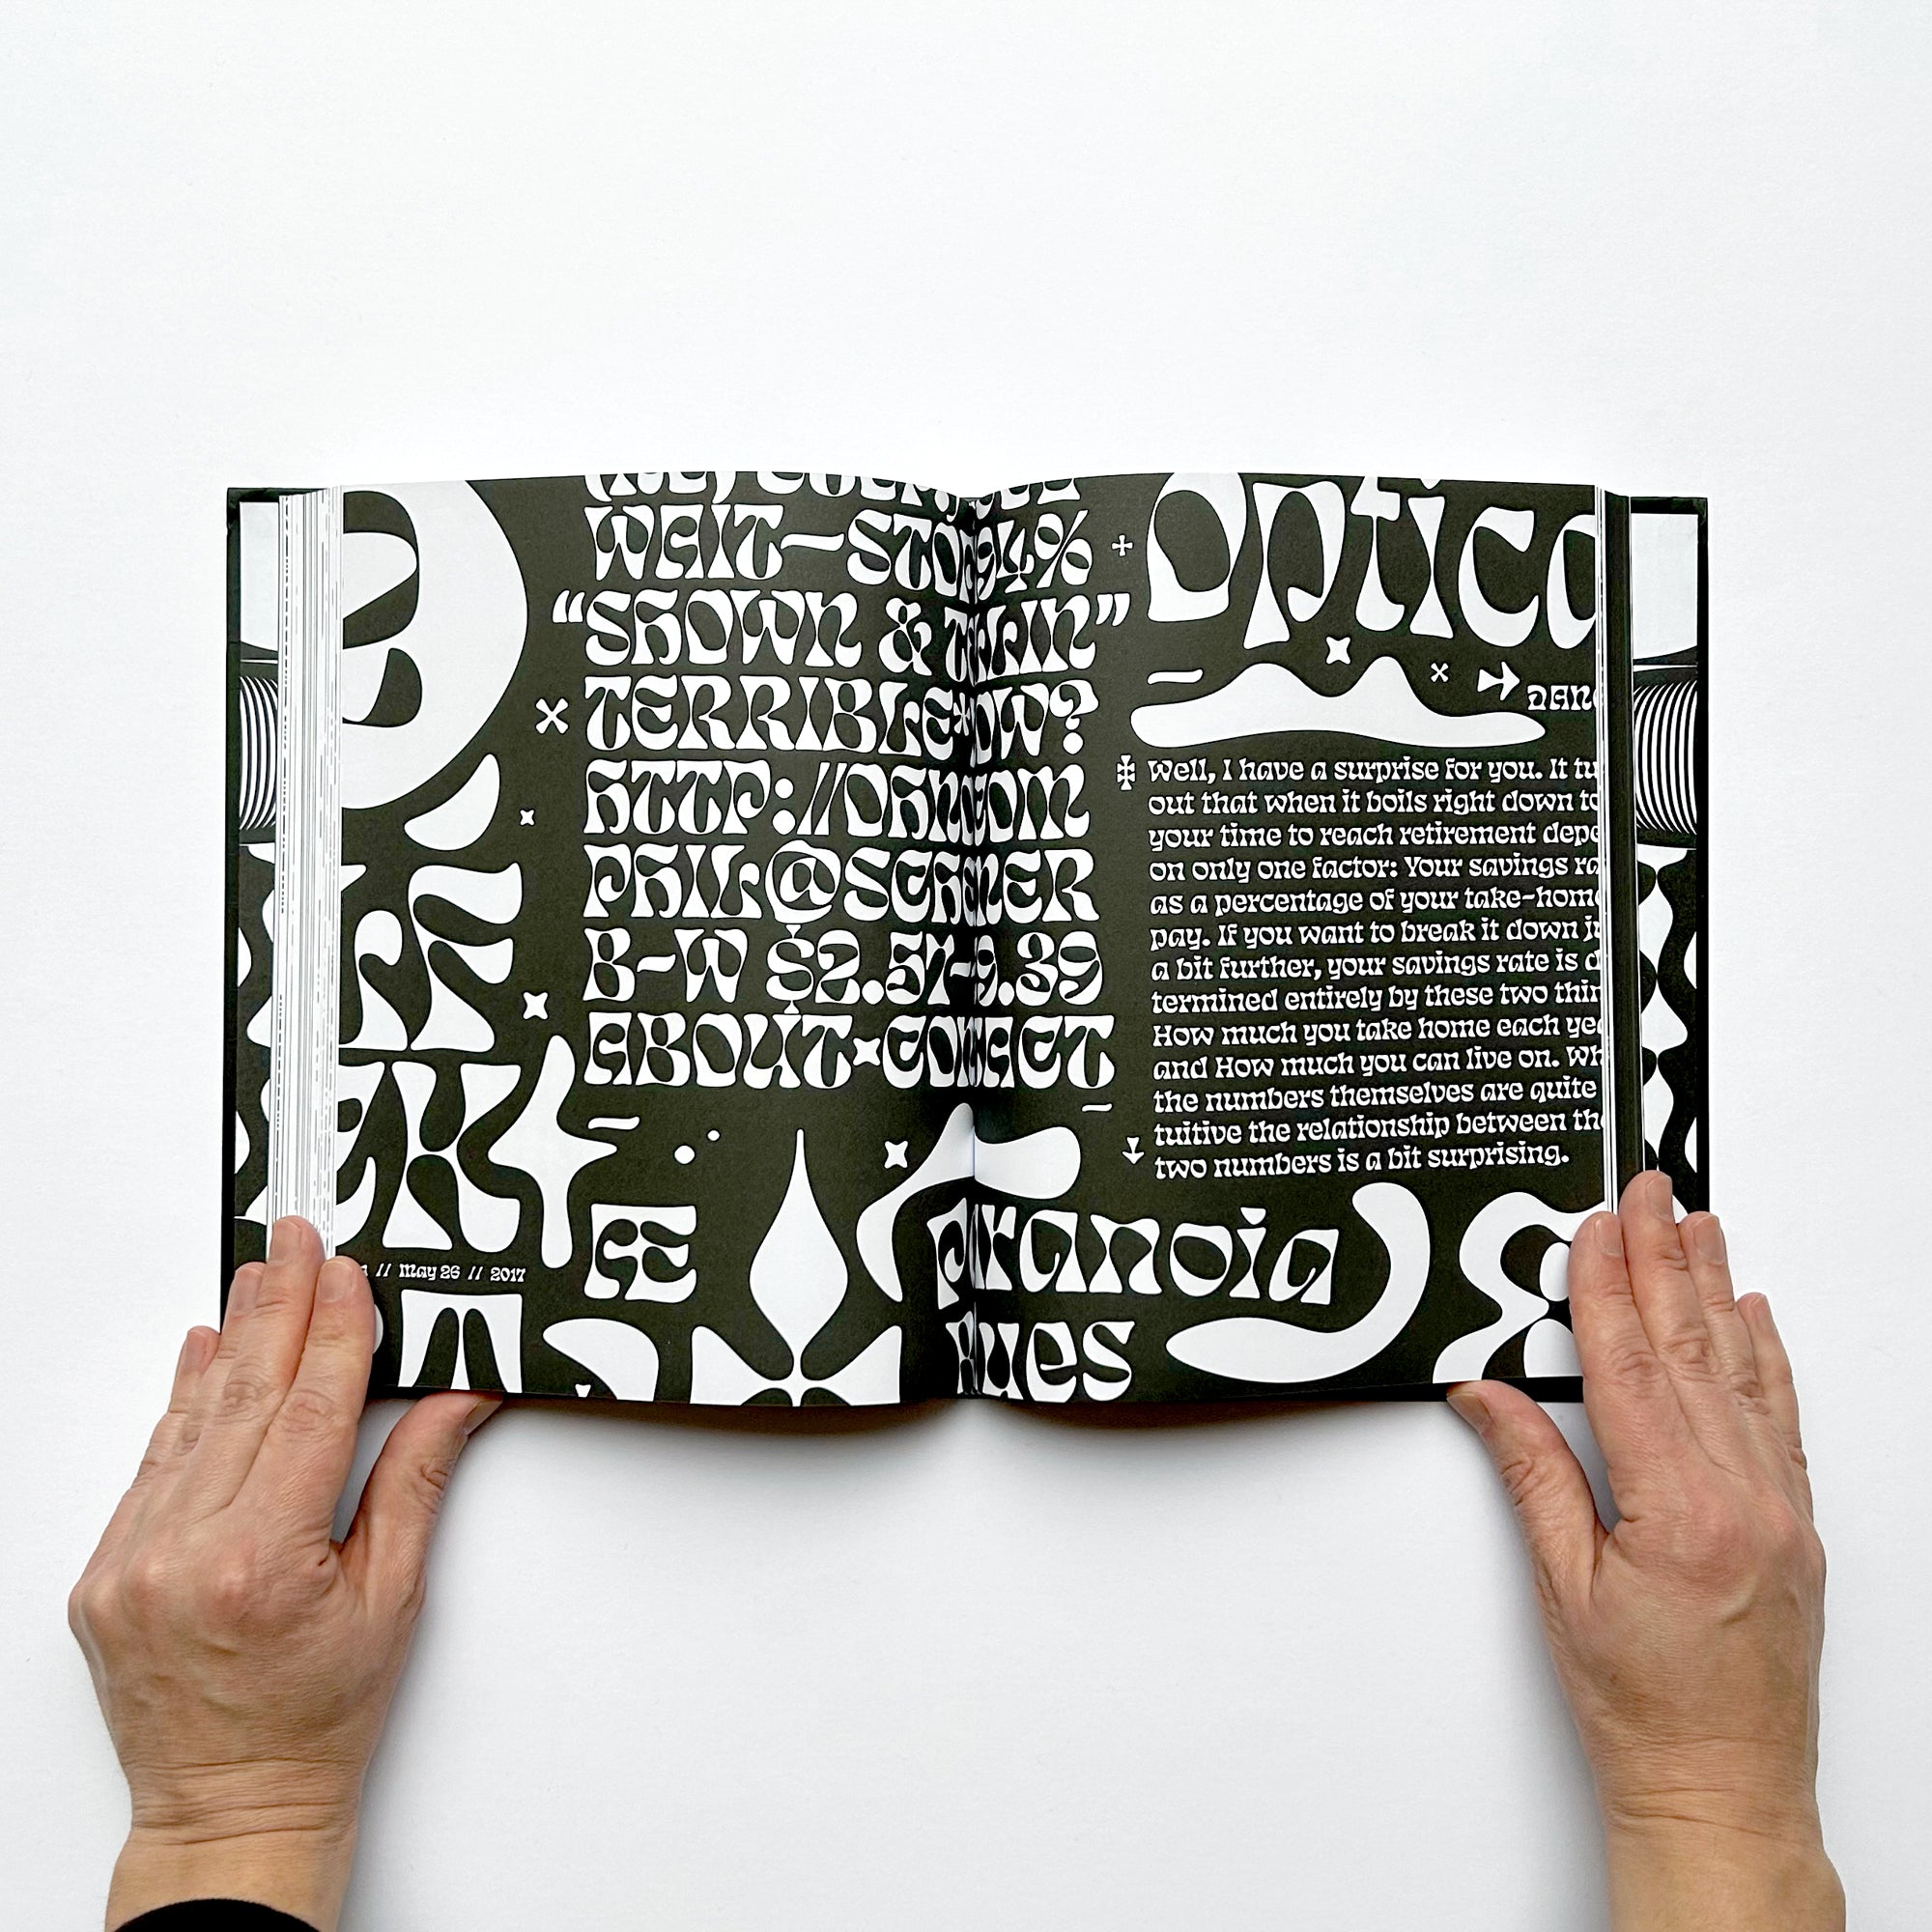 WAIT—STO 94%
“SHOWN &
TERRIBLE OW?
HTTP://OH COM
PHIL@SCH NER
B-W $2.57-9.39
ABOUT CONTACT
Æ
// May 26 // 2017
Optica
DAN
Well, I have a surprise for you. It tu
out that when it boils right down to
your time to reach retirement depe
on only one factor: Your savings ra
as a percentage of your take-home
pay. If you want to break it down ju
a bit further, your savings rate is d
termined entirely by these two thin
How much you take home each yea
and How much you can live on. Wh
the numbers themselves are quite
tuitive the relationship between th
two numbers is a bit surprising.
paranoia
yes